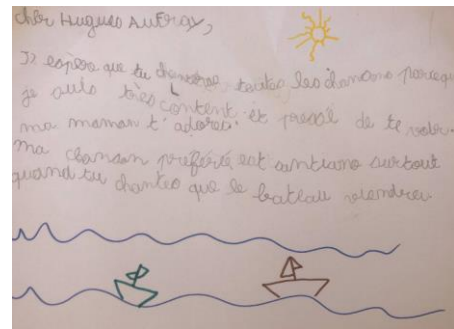 Cher Hugues Aufray,
J'espère que tu chanteras toutes les chansons parceque
je suis très content et pressé de te voir.
ma maman t'adore.
Ma chanson préférée est santiano surtout
quand tu chantes que le bateau viendra